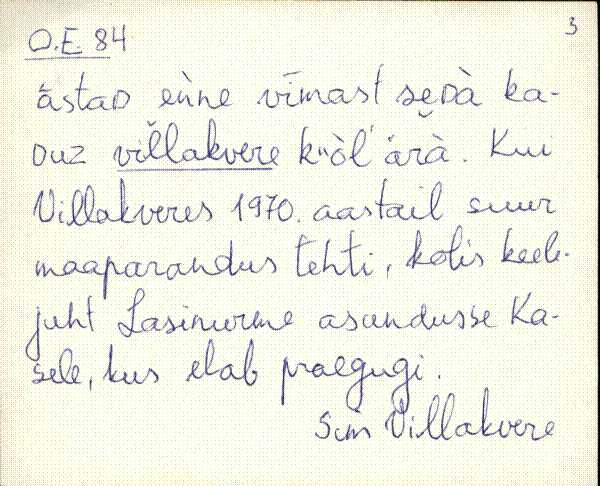 3
O.E. 84
āstaᴅ eǹne vīmast́ seᴅà ka-
ᴅuz villakvere k"òl' ärà. Kui
Villakveres 1970. aastail suur
maaparandus tehti, kolis keele-
juht Lasinurme asundusse Ka-
sele, kus elab praegugi.
Sim Villakvere